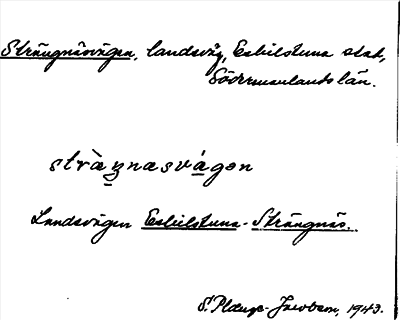 Strängnäsvägen, landsväg, Eskilstuna stad,
Södermanlands län.
stràŋnasvágən
Landsvägen Eskilstuna - Strängnäs.
S. Plauge-Jacobson, 1943.